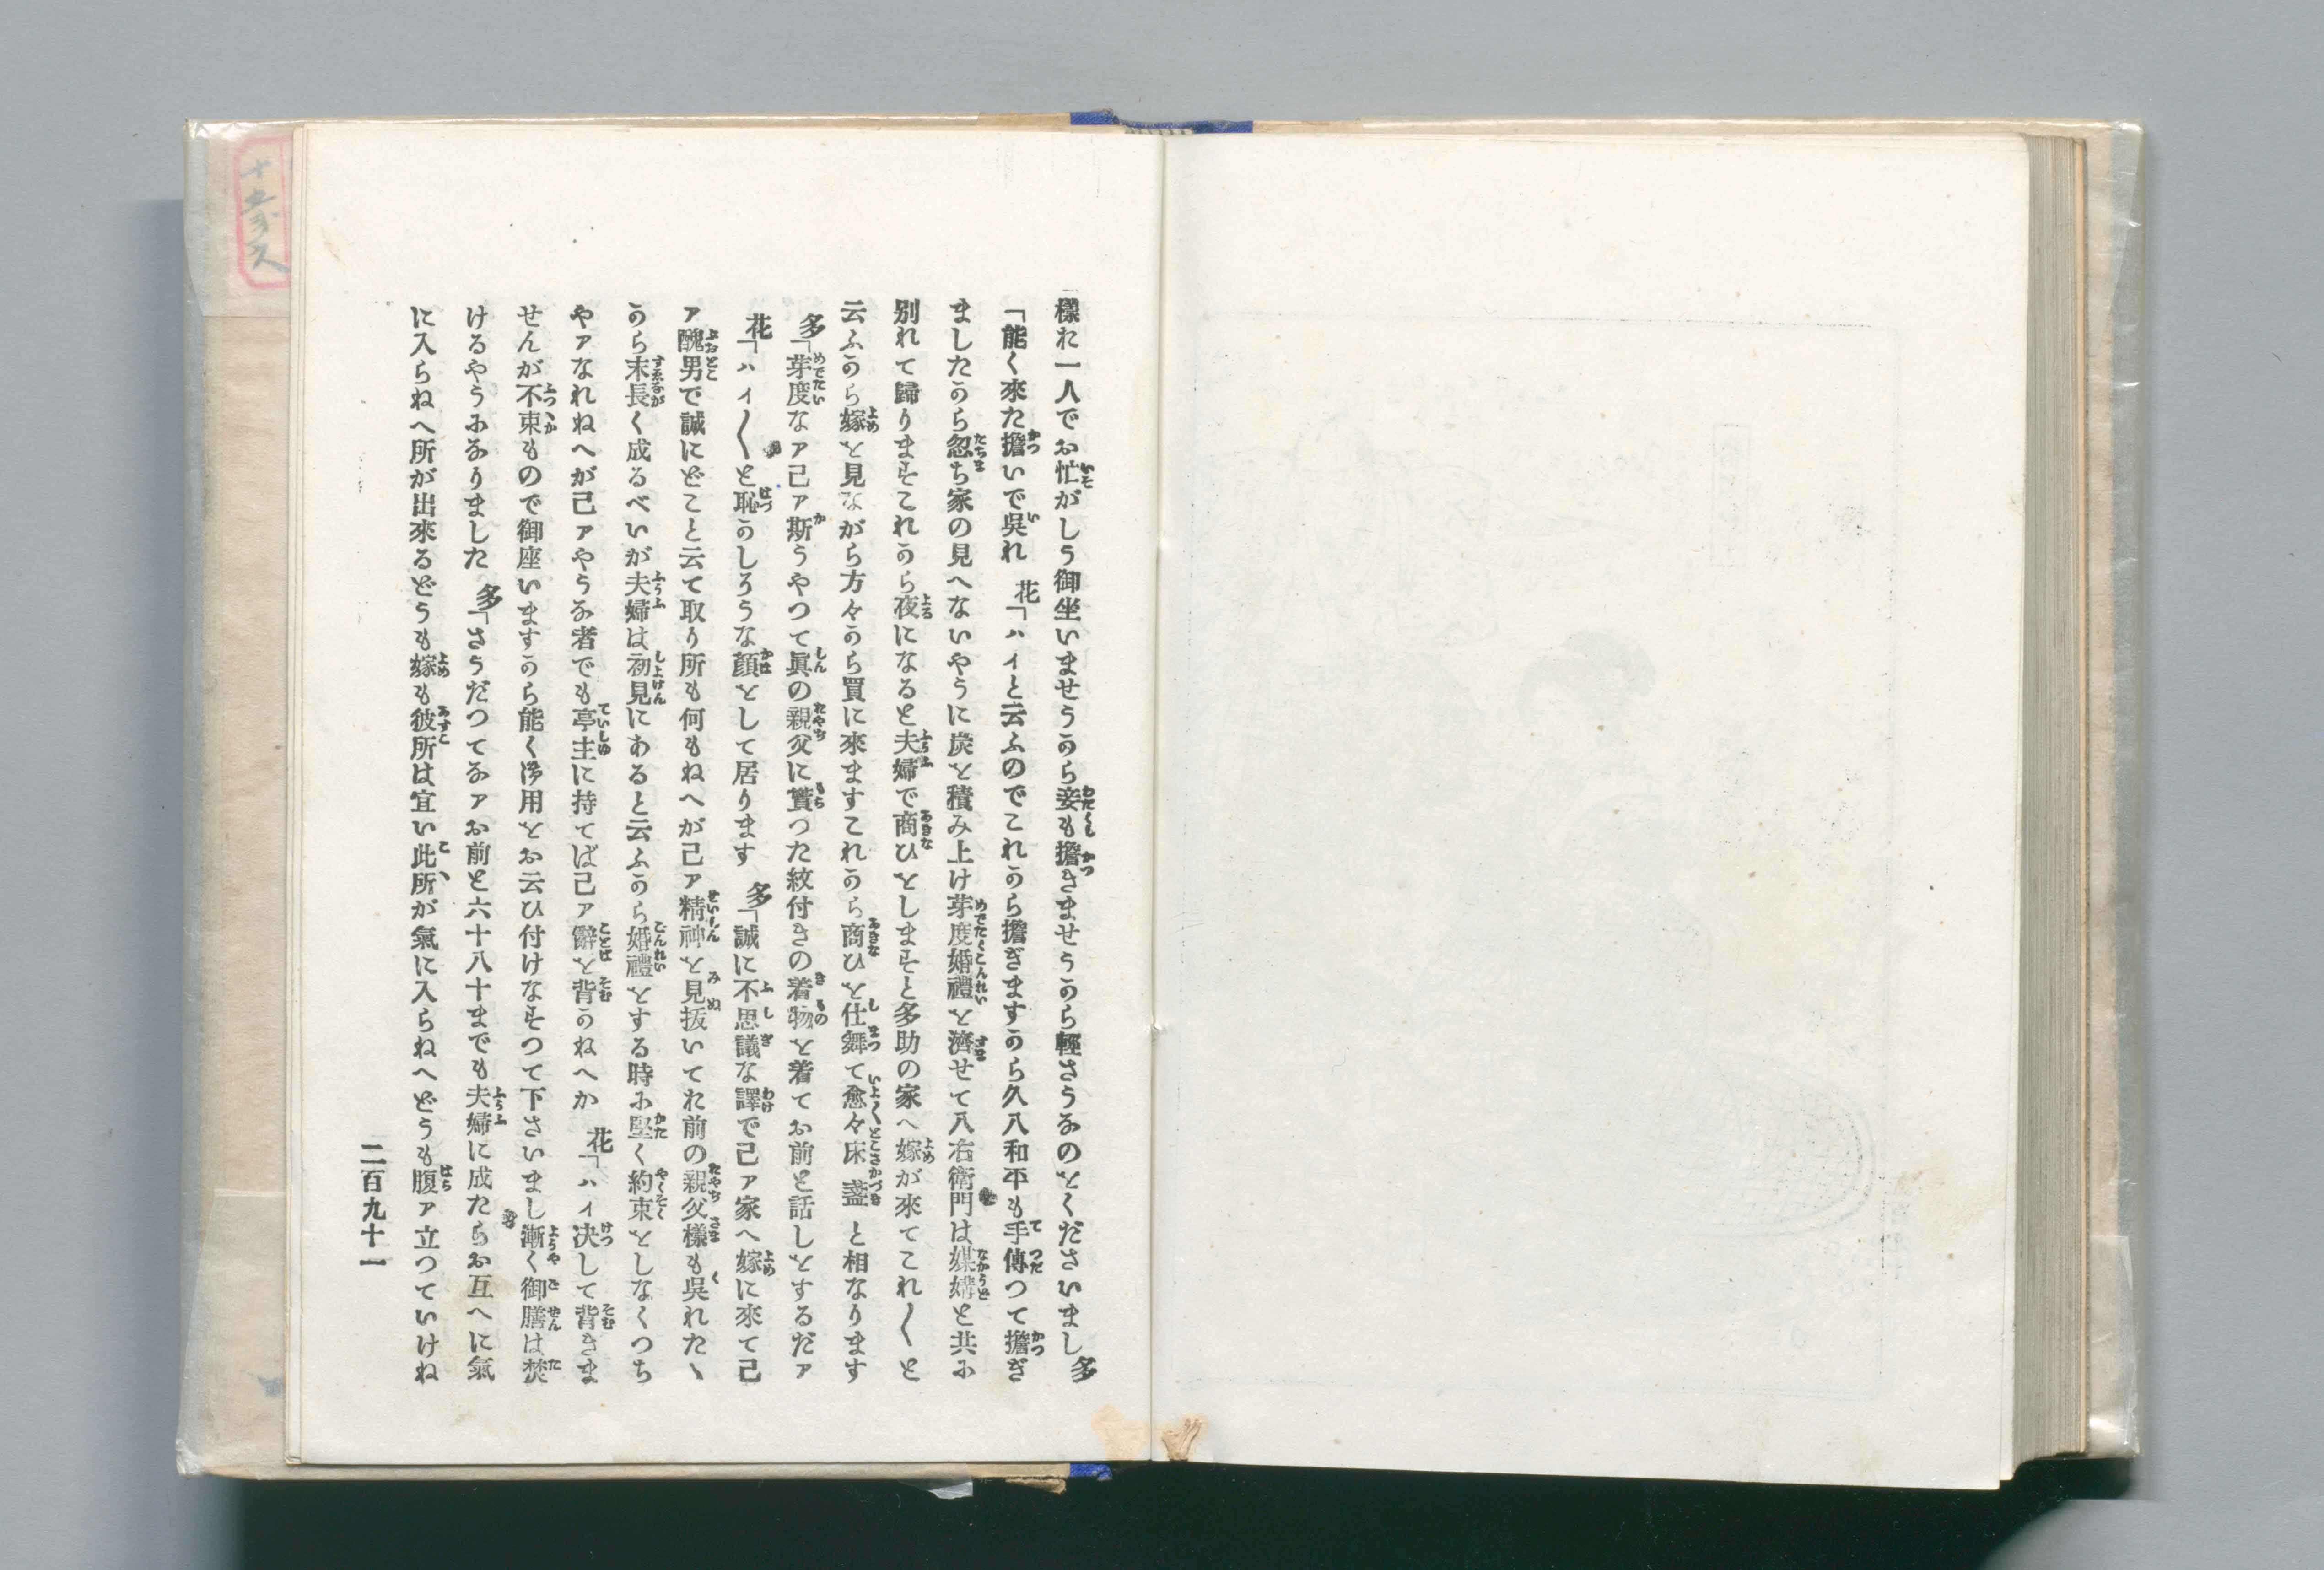 樣た一人でお忙がしう御坐いませうから妾も擔ぎませうから輕さうなのをくださいまし　多
「能く來た擔いで呉れ　花「ハイと云ふのでこれから擔ぎますから久八和平も手傳つて擔ぎ
ましたから忽ち家の見へないやうに炭を積み上け芽度婚禮を濟せて八右衛門は媒媾と共に
別れて歸りますこれから夜になると夫婦で商ひをしますと多助の家へ嫁が來てこれ〳〵と
云ふから嫁を見ながら方々から買に來ますこれから商ひを仕舞て愈々床盞と相なります
多「芽度なァ己ァ斯うやつて眞の親父に貰つた紋付きの着物を着てお前と話しをするだァ
花「ハイ〳〵と恥かしろうな顔をして居ります　多「誠に不思議な譯で己ァ家へ嫁に來て己
ァ醜男で誠にどこと云て取り所も何もねへが己ァ精神を見拔いてた前の親父樣も呉れたヽ
から末長く成るべいが夫婦は初見にあると云ふから婚禮をする時に堅く約束をしなくつち
やァなれねへが己ァやうな者でも亭主に持てば己ァ辭を背かねへか　花「ハイ决して背きま
せんが不束もので御座いますから能く御用をお云ひ付けなすつて下さいまし漸く御膳は焚
けるやうになりました　多「さうだつてなァお前と六十八十までも夫婦に成たらお互へに氣
に入らねへ所が出來るどうも嫁も彼所は宜い此所が氣に入らねへどうも腹ァ立つていけね
二百九十一